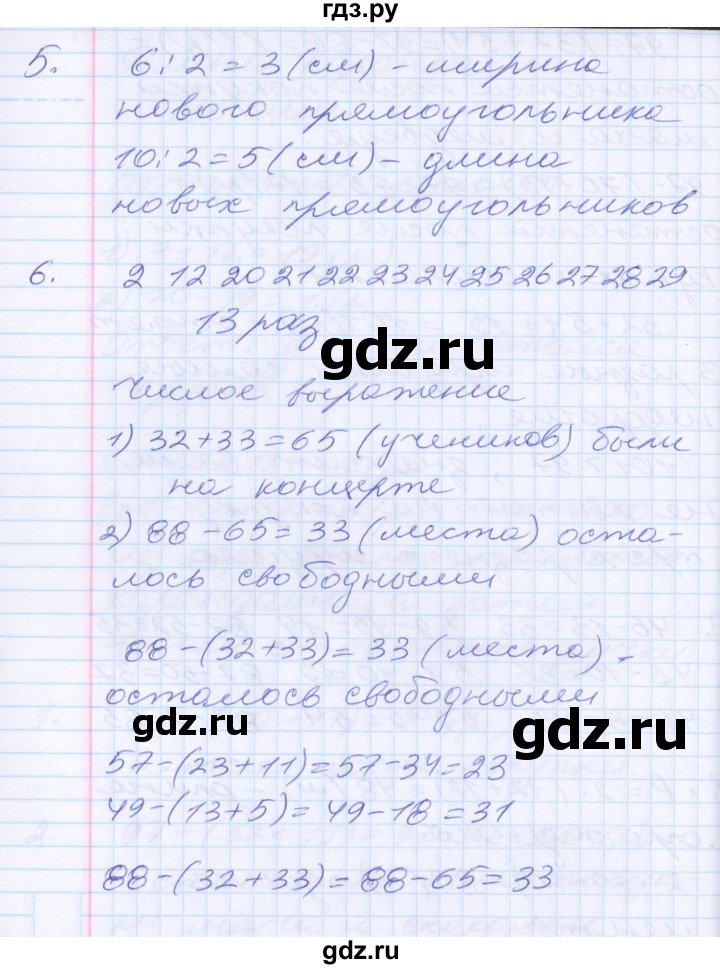 гдз.ру
5. 6:2=3(см) - ширина
нового прямоугольника
10:2=5(см) - длина
новых прямоугольников
6. 2 12 20 21 22 23 24 25 26 27 28 29
13 раз
gdz.ru
Числое выражение
1) 32+33=65 (учеников) были
на концерте
2) 88-65=33 (места) оста-
лось свободными
88-(32+33)=33 (места) -
осталось свободными
gdz.ru
gdz.ru
57-(23+11)=57-34=23
49-(13+5)=49-18=31
88-(32+33)=88-65=33
gdz.ru